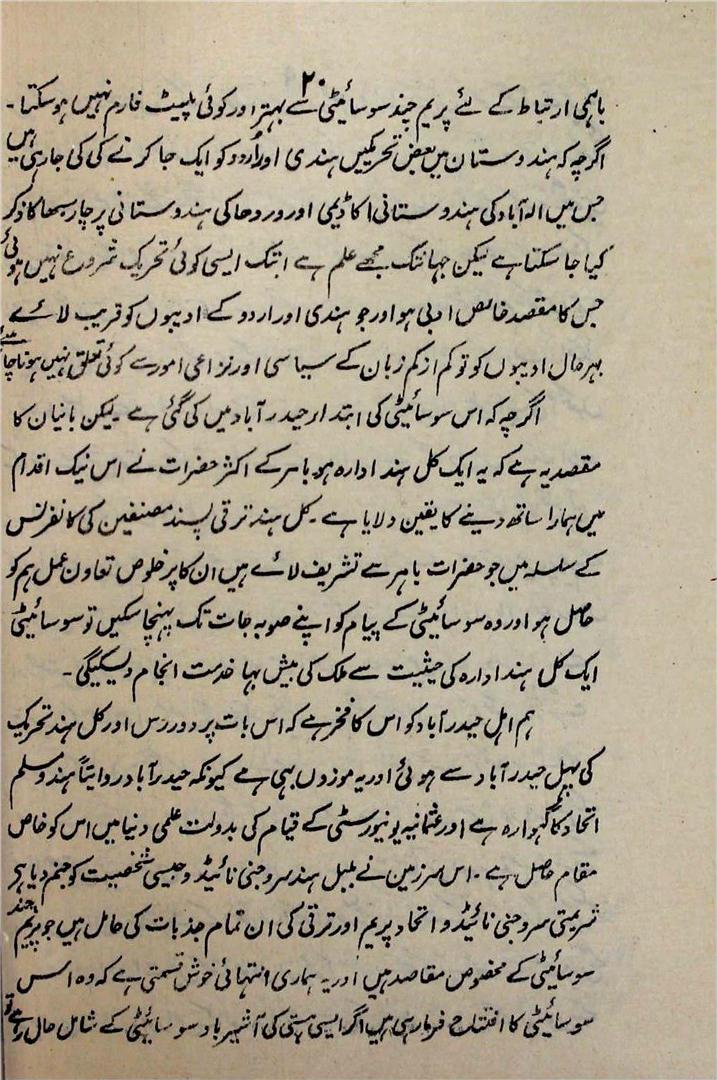 ۲۰
باہمی ارتباط کے لئے پریم چند سوسائیٹی سے بہتر اور کوئی پلیٹ فارم نہیں ہو سکتا۔
اگرچہ کہ ہندوستان میں بعض تحریکیں ہندی اور اُردو کو ایک جا کرنے کی کی جا رہی ہیں
جس میں الہ آباد کی ہندوستانی اکاڈیمی اور وردھا کی ہندوستانی پرچار سبھا کا ذکر
کیا جا سکتا ہے لیکن جہانتک مجھے علم ہے ابتک ایسی کوئی تحریک شروع نہیں ہوئی
جس کا مقصد خالص ادبی ہو اور جو ہندی اور اردو کے ادیبوں کو قریب لائے
بہرحال ادیبوں کو تو کم از کم زبان کے سیاسی اور نزاعی امور سے کوئی تعلق نہیں ہونا چاہئے
اگرچہ کہ اس سوسائیٹی کی ابتدا حیدرآباد میں کی گئی ہے۔ لیکن بانیان کا
مقصد یہ ہے کہ یہ ایک کل ہند ادارہ ہو باہر کے اکثر حضرات نے اس نیک اقدام
میں ہمارا ساتھ دینے کا یقین دلایا ہے۔ کل ہند ترقی پسند مصنفین کی کانفرنس
کے سلسلہ میں جو حضرات باہر سے تشریف لائے ہیں ان کا پرخلوص تعاون عمل ہم کو
حاصل ہو اور وہ سوسائیٹی کے پیام کو اپنے صوبہ جات تک پہنچا سکیں تو سوسائیٹی
ایک کل ہند ادارہ کی حیثیت سے ملک کی بیش بہا خدمت انجام دیسکیگی۔
ہم اہل حیدرآباد کو اس کا فخر ہے کہ اس بات پر دور رس اور کل ہند تحریک
کی پہل حیدرآباد سے ہوئی اور یہ موزوں بھی ہے کیونکہ حیدرآباد روایتاً ہندو مسلم
اتحاد کا گہوارہ ہے اور عثمانیہ یونیورسٹی کے قیام کی بدولت علمی دنیا میں اس کو خاص
مقام حاصل ہے۔ اس سرزمین نے بلبل ہند سروجنی نائیڈو جیسی شخصیت کو جنم دیا ہے
شریمتی سروجنی نائیڈو اتحاد پریم اور ترقی کی ان تمام جذبات کی حامل ہیں جو پریم چند
سوسائیٹی کے مخصوص مقاصد ہیں اور یہ ہماری انتہائی خوش قسمتی ہے کہ وہ اس
سوسائیٹی کا افتتاح فرما رہی ہیں اگر ایسی ہستی کی آشیرباد سوسائیٹی کے شامل حال رہے تو